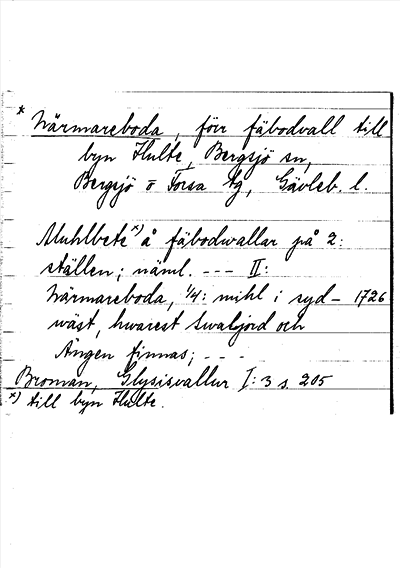 * Närmareboda, förr fäbodvall till
byn Hulte, Bergsjö sn,
Bergsjö o Forsa tg, Gävleb. l.
Muhlbete x) å fäbodwallar på 2:
ställen; näml. --- II:
Närmareboda, 1/4: mihl i syd- 1726
wäst, hwarest Swaljord och
Ängen finnas; ---
Broman, Glysisvallur I:3 s. 205
x) till byn Hulte.